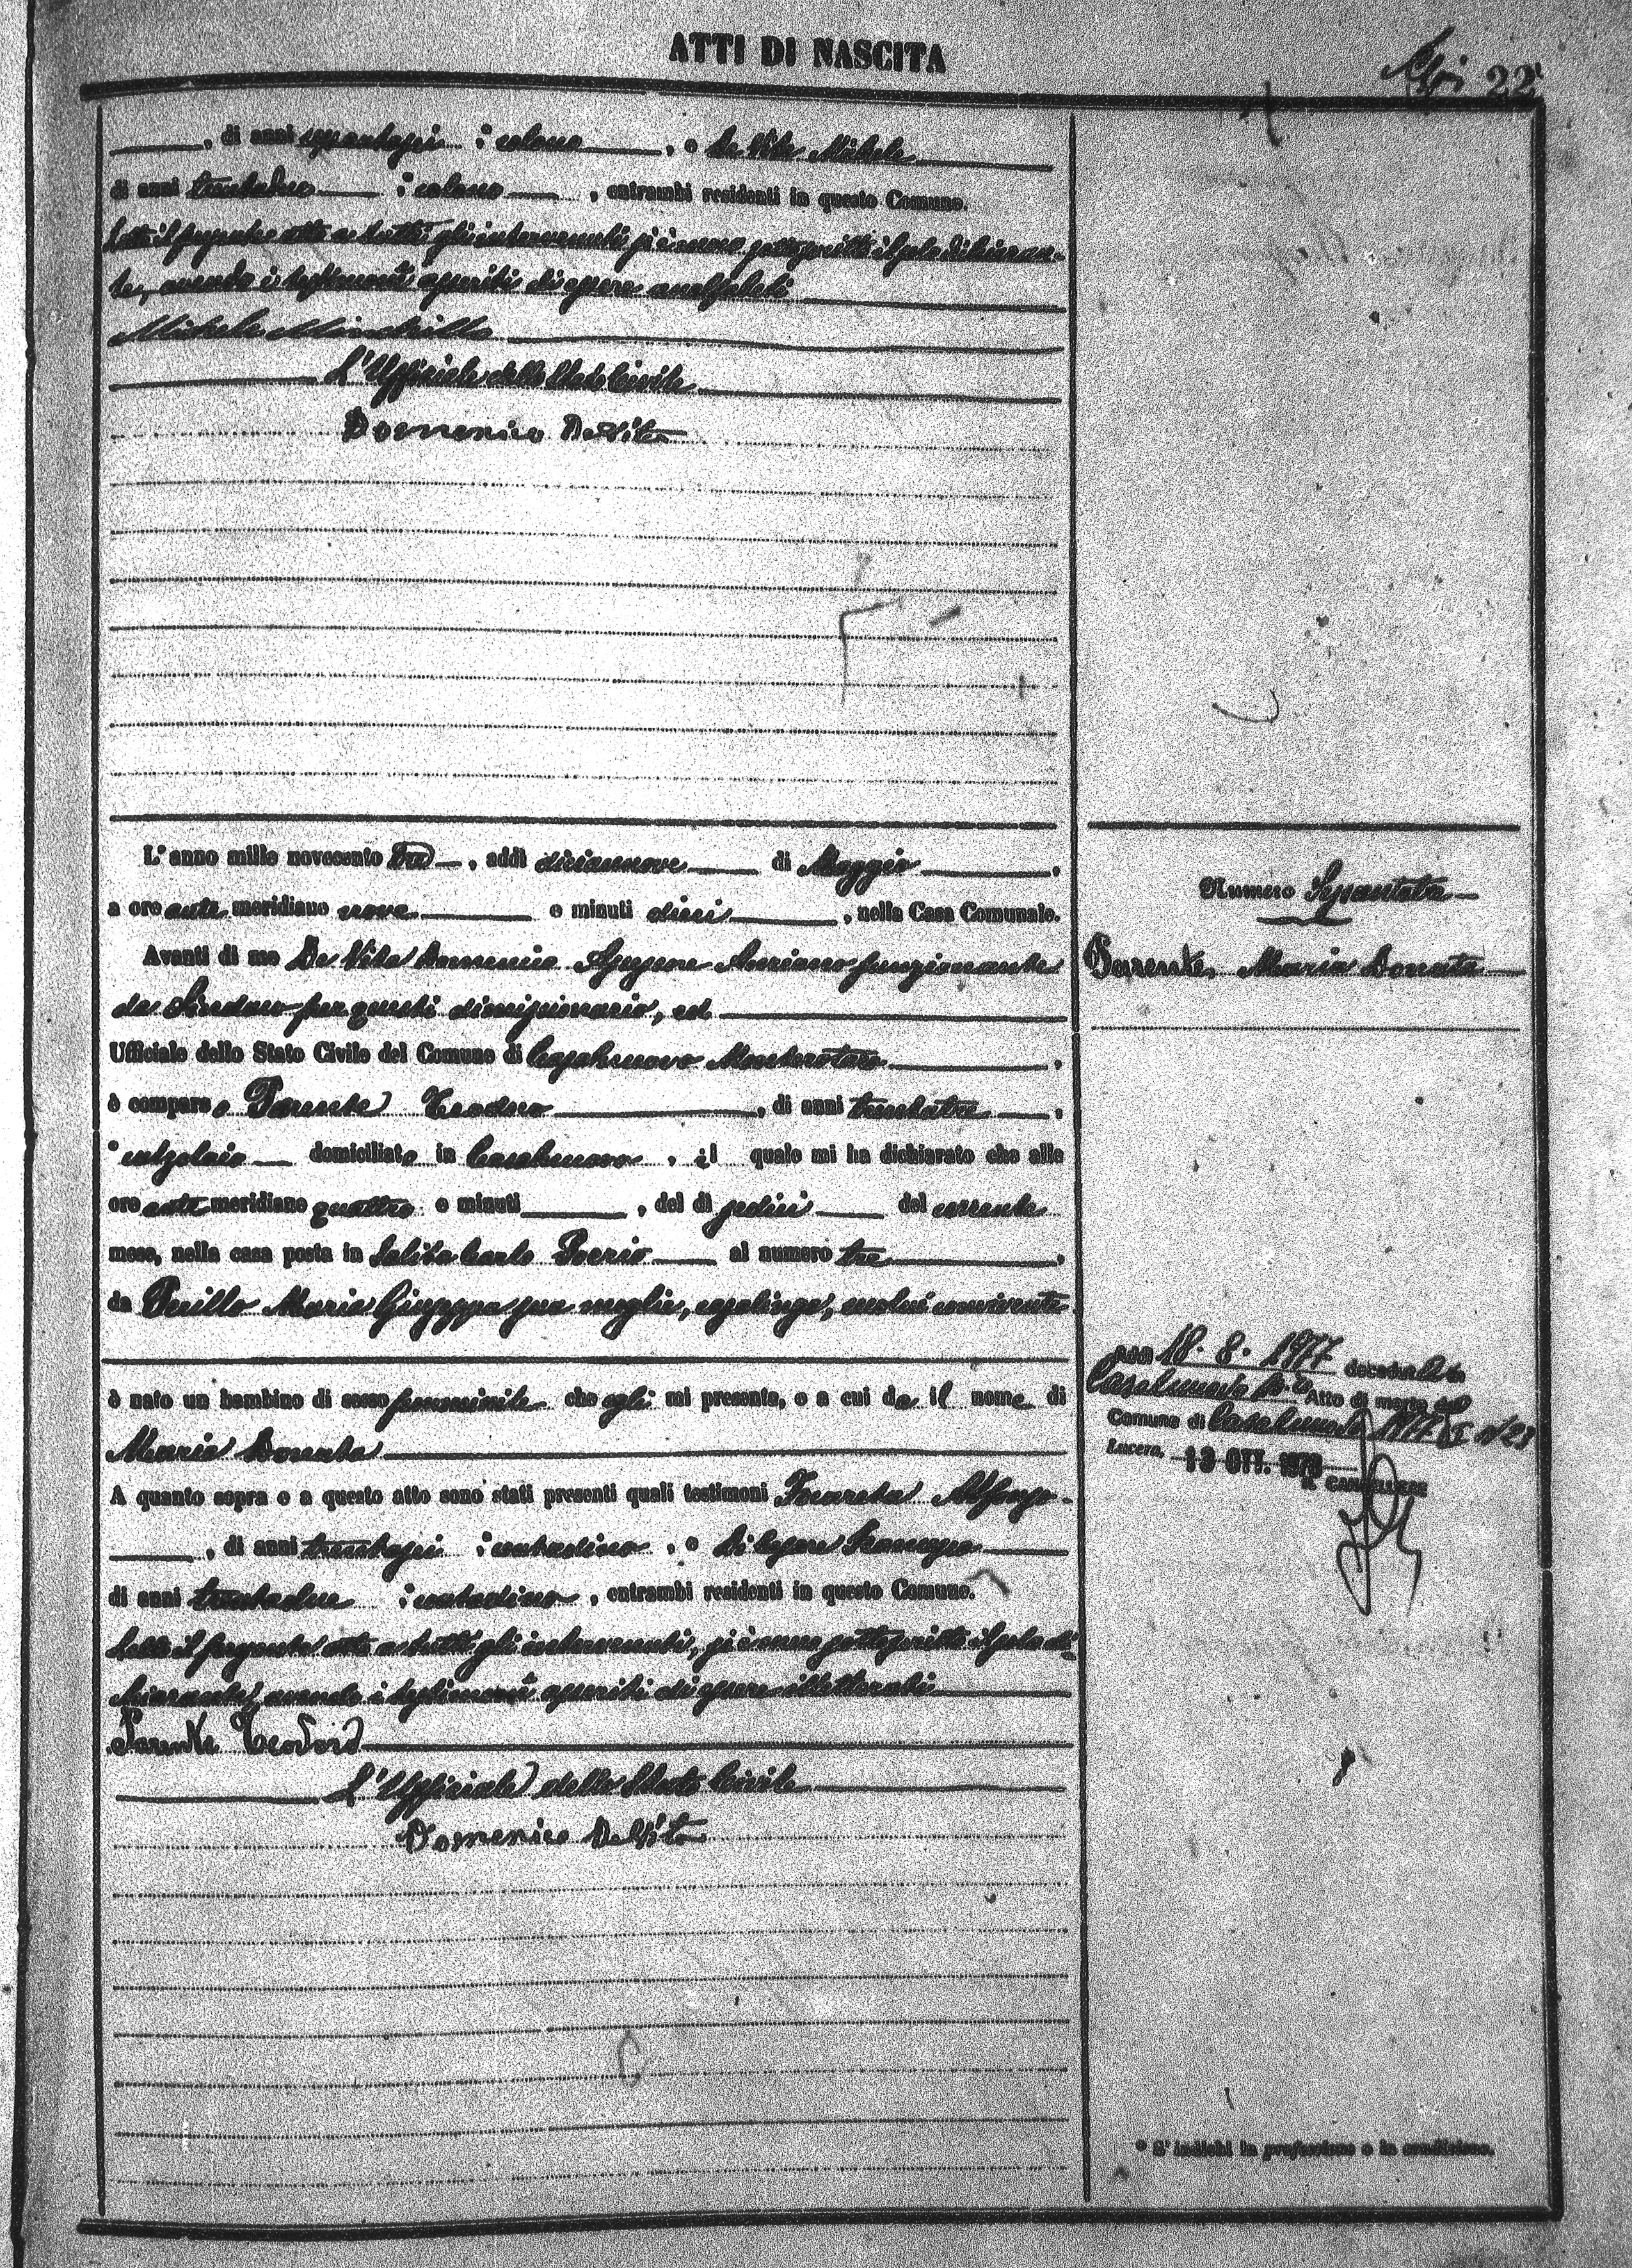 ATTI DI NASCITA
22
, di anni sessantasei, * colono, e De Vita Michele
di anni trentadue * colono, entrambi residenti in questo Comune.
Letto il presente atto a tutti gli intervenuti si è meco sottoscritto il solo dichiaran-
te, avendo i testimoni asserito di essere analfabeti
Michele
L'Uffiziale dello Stato Civile
Domenico De Vita
L'anno mille novecento tre, addì diciannove di Maggio,
a ore ante meridiane nove e minuti dieci, nella Casa Comunale.
Avanti di me De Vita Domenico Assessore Anziano funzionante
da Sindaco per questi dimissionario, ed
Ufficiale dello Stato Civile del Comune di Casalnuovo Monterotaro,
è comparso Parente Teodoro, di anni trentatre,
* calzolaio domiciliato in Casalnuovo, il quale mi ha dichiarato che alle
ore ante meridiane quattro e minuti, del dì sedici del corrente
mese, nella casa posta in Salita Carlo Poerio al numero tre,
da Perillo Maria Giuseppa sua moglie, casalinga, seco lui convivente
è nato un bambino di sesso femminile che egli mi presenta, e a cui da il nome di
Maria Donata
A quanto sopra e a questo atto sono stati presenti quali testimoni Alfonso
, di anni trentasei * contadino, e Di Cesare Francesco
di anni trentadue * contadino, entrambi residenti in questo Comune.
Letto il presente atto a tutti gli intervenuti, si è meco sottoscritto il solo di-
chiarante, avendo i testimoni asserito di essere illetterati
Parente Teodoro
L'Uffiziale dello Stato Civile
Domenico De Vita
Numero Sessantatre
Parente Maria Donata
18.8.1977 deceduta in
Casalnuovo M.ro Atto di morte del
Comune di Casalnuovo 1977 I n° 23
Lucera, 13 OTT. 1978
IL CANCELLIERE
* S'indichi la professione o la condizione.